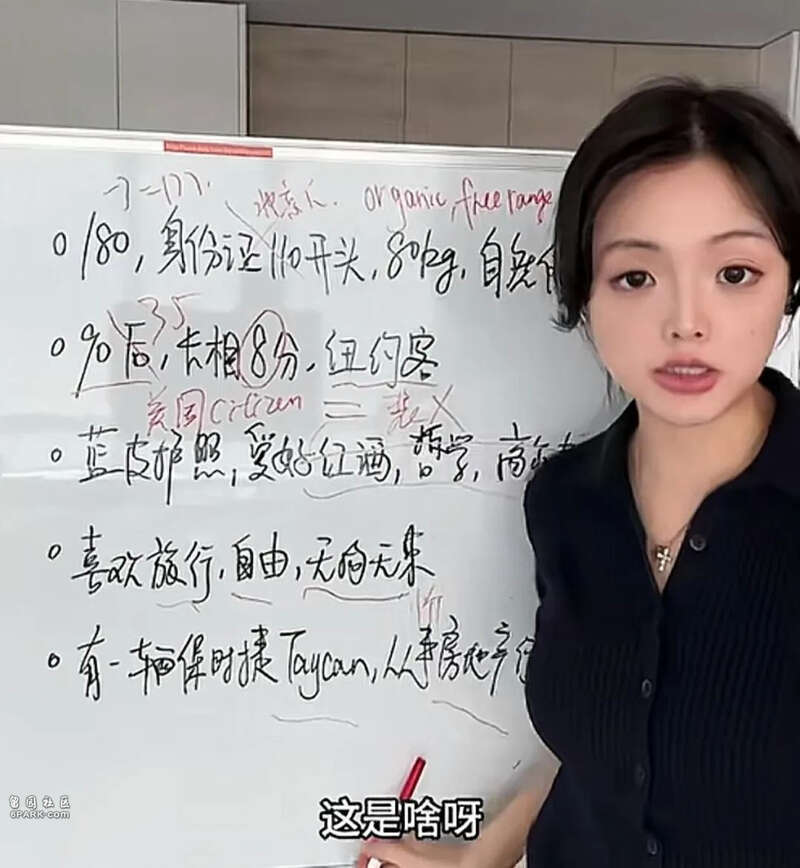 -3=177. 北京人. organic, free range
180, 身份证110开头, 80kg, 自
35
90后, 长相8分. 纽约客
美国citizen = 装X
蓝皮护照, 爱好红酒, 哲学, 高
喜欢旅行, 自由, 无拘无束
有一辆保时捷Taycan, 从事房地产
这是啥呀
留园社区
6PARK.COM